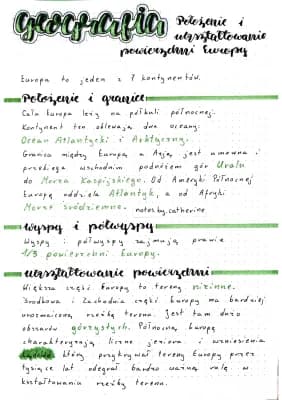 geografia
Położenie i
ukształtowanie
powierzchni Europy
Europa to jeden z 7 kontynentów.
Położenie i granice
Cała Europa leży na półkuli północnej.
Kontynent ten oblewają dwa oceany:
Ocean Atlantycki i Arktyczny.
Granica między Europą a Azją jest umowna i
przebiega wschodnim podnóżem gór Uralu
do Morza Kaspijskiego. Od Ameryki Północnej
Europę oddziela Atlantyk, a od Afryki
Morze śródziemne. notosby.catherine.
wyspy i półwyspy
Wyspy i półwyspy zajmują prawie
1/3 powierzchni Europy.
ukształtowanie powierzchni
Większa część Europy to tereny nizinne.
Środkowa i Zachodnia część Europy ma bardziej
urozmaiconą rzeźbę terenu. Jest tam dużo
obszarów górzystych. Północną Europę
charakteryzują liczne jeziora i wzniesienia
Lądolód który przykrywał tereny Europy przez
tysiące lat odegrał bardzo ważną rolę w
kształtowaniu rzeźby terenu.